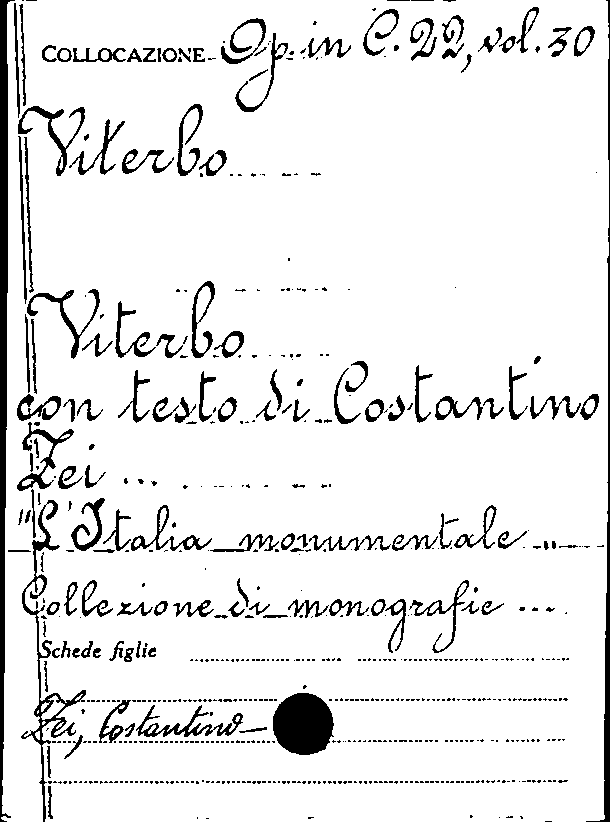 COLLOCAZIONE Op. in C. 22, vol. 30
Viterbo
Viterbo
con testo di Costantino
Zei ...
"L'Italia monumentale„
Collezione di monografie ...
Schede figlie
Zei, Costantino